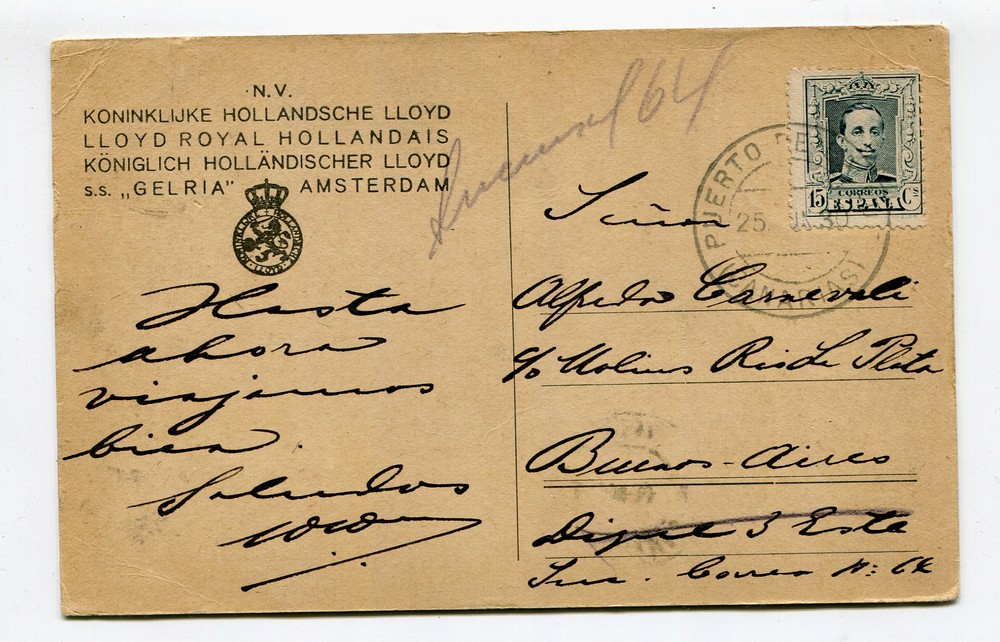 N.V.
KONINKLIJKE HOLLANDSCHE LLOYD
LLOYD ROYAL HOLLANDAIS
KÖNIGLICH HOLLÄNDISCHER LLOYD
S.S. „GELRIA" AMSTERDAM
KONINKLIJKE HOLLANDSCHE LLOYD
Hasta
ahora
viajamos
bien.
Saludos
Sucursal 64
PUERTO DE
25. 30
(CANARIAS)
15 CORREOS Cs
ESPAÑA
Señor
Alfredo Carnevali
c/o Molinos Rio de la Plata
Buenos-Aires
Dique 3 Este
Suc. Correo N: 64